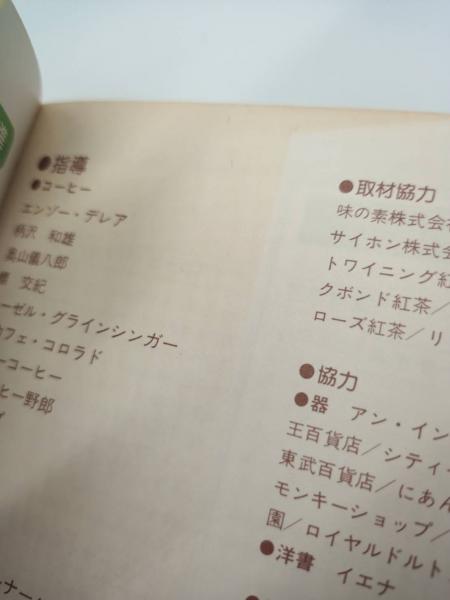 ●指導
●コーヒー
エンゾー・デレア
柄沢 和雄
奥山儀八郎
交紀
ーゼル・グラインシンガー
カフェ・コロラド
ーコーヒー
ヒー野郎
●取材協力
味の素株式会社
サイホン株式会
トワイニング紅
クボンド紅茶／
ローズ紅茶／リ
●協力
●器 アン・イン
王百貨店／シティー
東武百貨店／にあん
モンキーショップ／
園／ロイヤルドルト
●洋書 イエナ